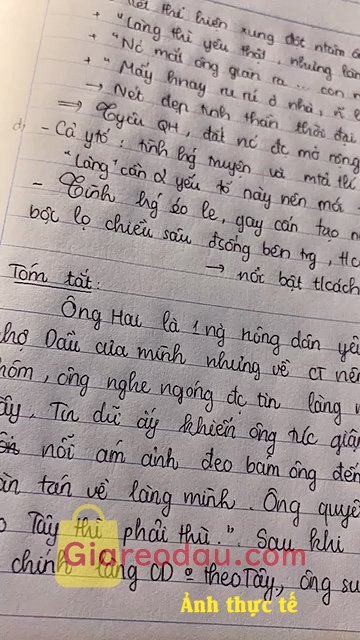 Nét thể hiện xung đột
+ "Làng thì yêu thật, nhưng
+ "Nó mất ông gian ra... con
+ "Mấy hnay ru rú ở nhà,
→ Nét đẹp tinh thần thời đại
⇒ Tyêu QH, đất nc đc mở rộng
- Cả ytố: tình hg truyện và mtả
"Làng" cần 2 yếu tố này nên mới
- Tình hg éo le, gay cấn tạo
bộc lộ chiều sâu đsống bên trg,
→ nổi bật tlcách
Tóm tắt:
Ông Hai là 1 ng nông dân yê
hợ Dầu của mình nhưng về CT nê
hôm, ông nghe ngóng đc tin làng
ây. Tin dữ ấy khiến ông tức giậ
nỗi ám ảnh đeo bám ông đến
àn tán về làng mình. Ông quyế
Tây thì phải thù.". Sau khi
chính làng CD º theo Tây, ông su
Giareodau.com
Ảnh thực tế